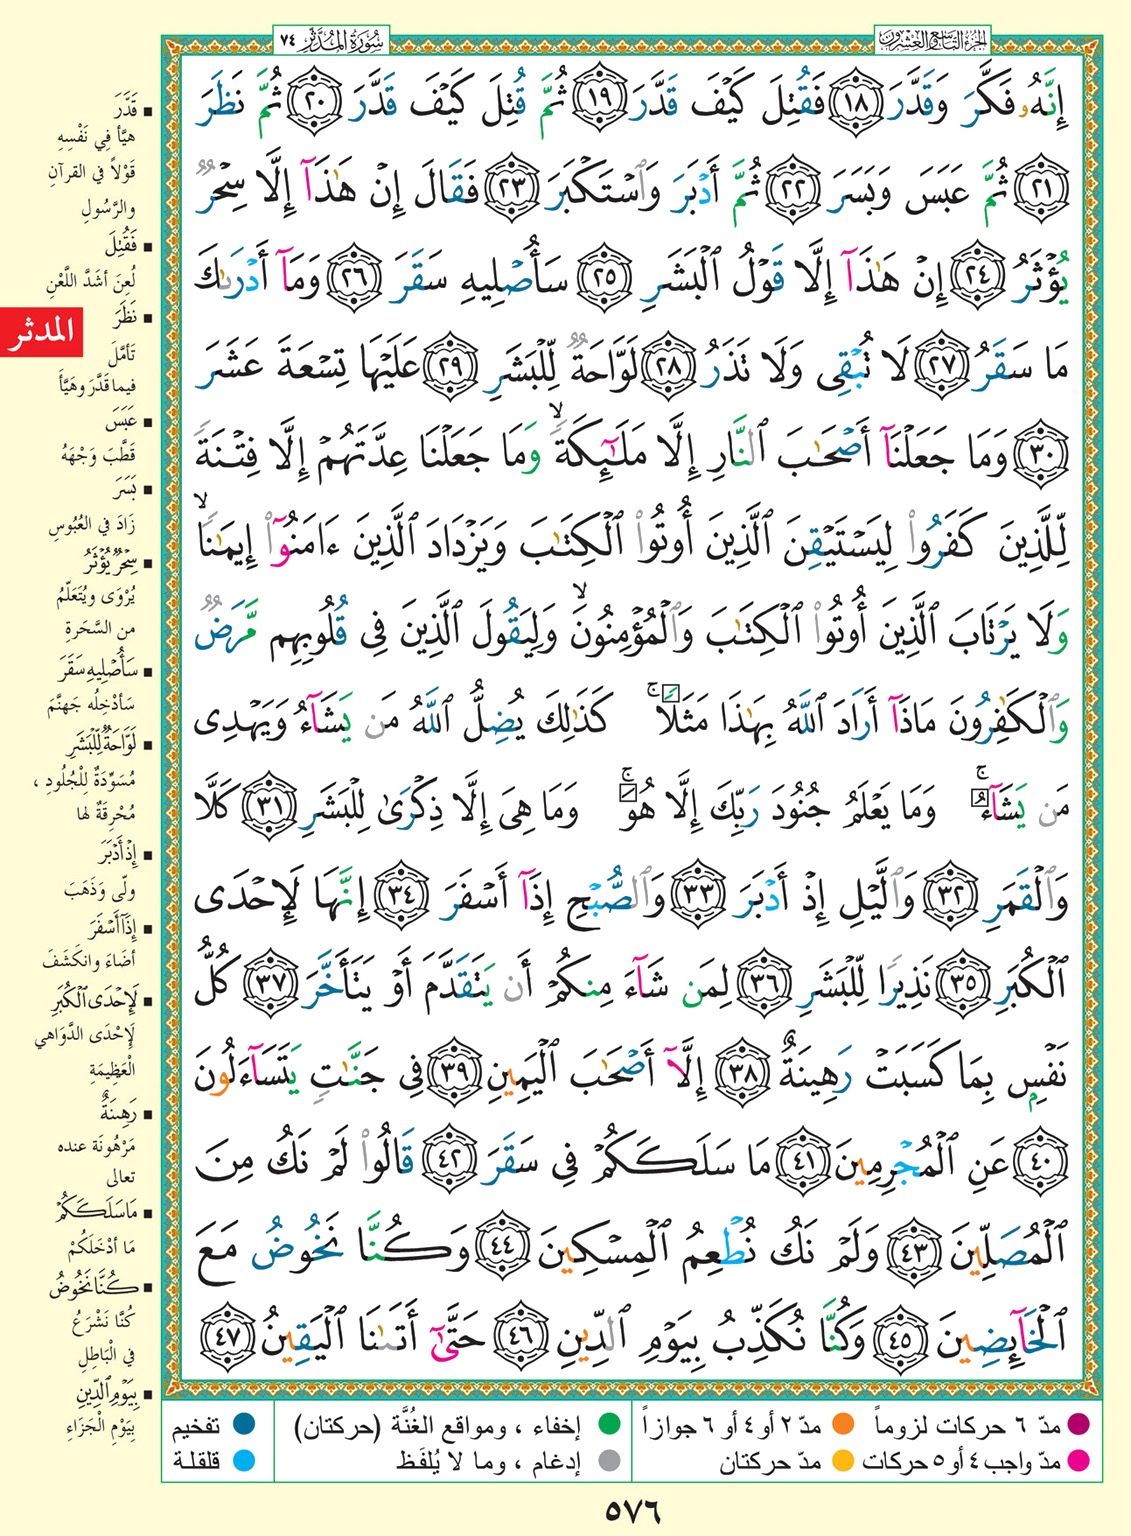 الجزء التاسع والعشرون
سُورَةُ المُدَّثِّرِ ٧٤
إِنَّهُۥ فَكَّرَ وَقَدَّرَ ١٨ فَقُتِلَ كَيْفَ قَدَّرَ ١٩ ثُمَّ قُتِلَ كَيْفَ قَدَّرَ ٢٠ ثُمَّ نَظَرَ
٢١ ثُمَّ عَبَسَ وَبَسَرَ ٢٢ ثُمَّ أَدْبَرَ وَٱسْتَكْبَرَ ٢٣ فَقَالَ إِنْ هَٰذَآ إِلَّا سِحْرٌ
يُؤْثَرُ ٢٤ إِنْ هَٰذَآ إِلَّا قَوْلُ ٱلْبَشَرِ ٢٥ سَأُصْلِيهِ سَقَرَ ٢٦ وَمَآ أَدْرَىٰكَ
مَا سَقَرُ ٢٧ لَا تُبْقِى وَلَا تَذَرُ ٢٨ لَوَّاحَةٌ لِّلْبَشَرِ ٢٩ عَلَيْهَا تِسْعَةَ عَشَرَ
٣٠ وَمَا جَعَلْنَآ أَصْحَٰبَ ٱلنَّارِ إِلَّا مَلَٰٓئِكَةً ۙ وَمَا جَعَلْنَا عِدَّتَهُمْ إِلَّا فِتْنَةً
لِّلَّذِينَ كَفَرُوا۟ لِيَسْتَيْقِنَ ٱلَّذِينَ أُوتُوا۟ ٱلْكِتَٰبَ وَيَزْدَادَ ٱلَّذِينَ ءَامَنُوٓا۟ إِيمَٰنًا ۙ
وَلَا يَرْتَابَ ٱلَّذِينَ أُوتُوا۟ ٱلْكِتَٰبَ وَٱلْمُؤْمِنُونَ ۙ وَلِيَقُولَ ٱلَّذِينَ فِى قُلُوبِهِم مَّرَضٌ
وَٱلْكَٰفِرُونَ مَاذَآ أَرَادَ ٱللَّهُ بِهَٰذَا مَثَلًا ۚ كَذَٰلِكَ يُضِلُّ ٱللَّهُ مَن يَشَآءُ وَيَهْدِى
مَن يَشَآءُ ۚ وَمَا يَعْلَمُ جُنُودَ رَبِّكَ إِلَّا هُوَ ۚ وَمَا هِىَ إِلَّا ذِكْرَىٰ لِلْبَشَرِ ٣١ كَلَّا
وَٱلْقَمَرِ ٣٢ وَٱلَّيْلِ إِذْ أَدْبَرَ ٣٣ وَٱلصُّبْحِ إِذَآ أَسْفَرَ ٣٤ إِنَّهَا لَإِحْدَى
ٱلْكُبَرِ ٣٥ نَذِيرًا لِّلْبَشَرِ ٣٦ لِمَن شَآءَ مِنكُمْ أَن يَتَقَدَّمَ أَوْ يَتَأَخَّرَ ٣٧ كُلُّ
نَفْسٍۭ بِمَا كَسَبَتْ رَهِينَةٌ ٣٨ إِلَّآ أَصْحَٰبَ ٱلْيَمِينِ ٣٩ فِى جَنَّٰتٍ يَتَسَآءَلُونَ
٤٠ عَنِ ٱلْمُجْرِمِينَ ٤١ مَا سَلَكَكُمْ فِى سَقَرَ ٤٢ قَالُوا۟ لَمْ نَكُ مِنَ
ٱلْمُصَلِّينَ ٤٣ وَلَمْ نَكُ نُطْعِمُ ٱلْمِسْكِينَ ٤٤ وَكُنَّا نَخُوضُ مَعَ
ٱلْخَآئِضِينَ ٤٥ وَكُنَّا نُكَذِّبُ بِيَوْمِ ٱلدِّينِ ٤٦ حَتَّىٰٓ أَتَىٰنَا ٱلْيَقِينُ ٤٧
■ قَدَّرَ
هيَّأ فِي نَفْسِهِ
قَوْلاً في القرآنِ
والرَّسُولِ
■ فَقُتِلَ
لُعِنَ أشَدَّ اللَّعْنِ
■ نَظَرَ
تَأمَّلَ
فيما قَدَّرَ وهَيَّأَ
■ عَبَسَ
قَطَّبَ وَجْهَهُ
■ بَسَرَ
زَادَ في العُبُوسِ
■ سِحْرٌ يُؤْثَرُ
يُرْوَى ويُتَعَلَّمُ
من السَّحَرةِ
■ سَأُصْلِيهِ سَقَرَ
سَأدْخِلُه جَهنَّمَ
■ لَوَّاحَةٌ لِّلْبَشَرِ
مُسَوِّدَةٌ لِلْجُلُودِ ،
مُحْرِقَةٌ لها
■ إِذْ أَدْبَرَ
ولّى وَذَهَبَ
■ إِذَآ أَسْفَرَ
أضَاءَ وانكَشَفَ
■ لَإِحْدَى ٱلْكُبَرِ
لَإِحْدَى الدَّوَاهي
الْعَظِيمَةِ
■ رَهِينَةٌ
مَرْهُونَة عنده
تعالى
■ مَا سَلَكَكُمْ
مَا أدْخَلَكُمْ
■ كُنَّا نَخُوضُ
كُنَّا نَشْرَعُ
في الْبَاطِلِ
■ بِيَوْمِ ٱلدِّينِ
بِيَوْمِ الْجَزَاءِ
المدثر
مدّ ٦ حركات لزوماً مدّ ٢ أو ٤ أو ٦ جوازاً إخفاء ، ومواقع الغُنَّة (حركتان) تفخيم
مدّ واجب ٤ أو ٥ حركات مدّ حركتان إدغام ، وما لا يُلفَظ قلقلة
٥٧٦